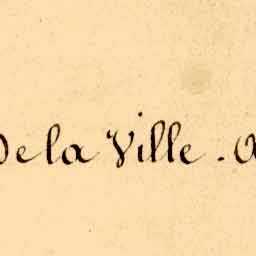 De la Ville.